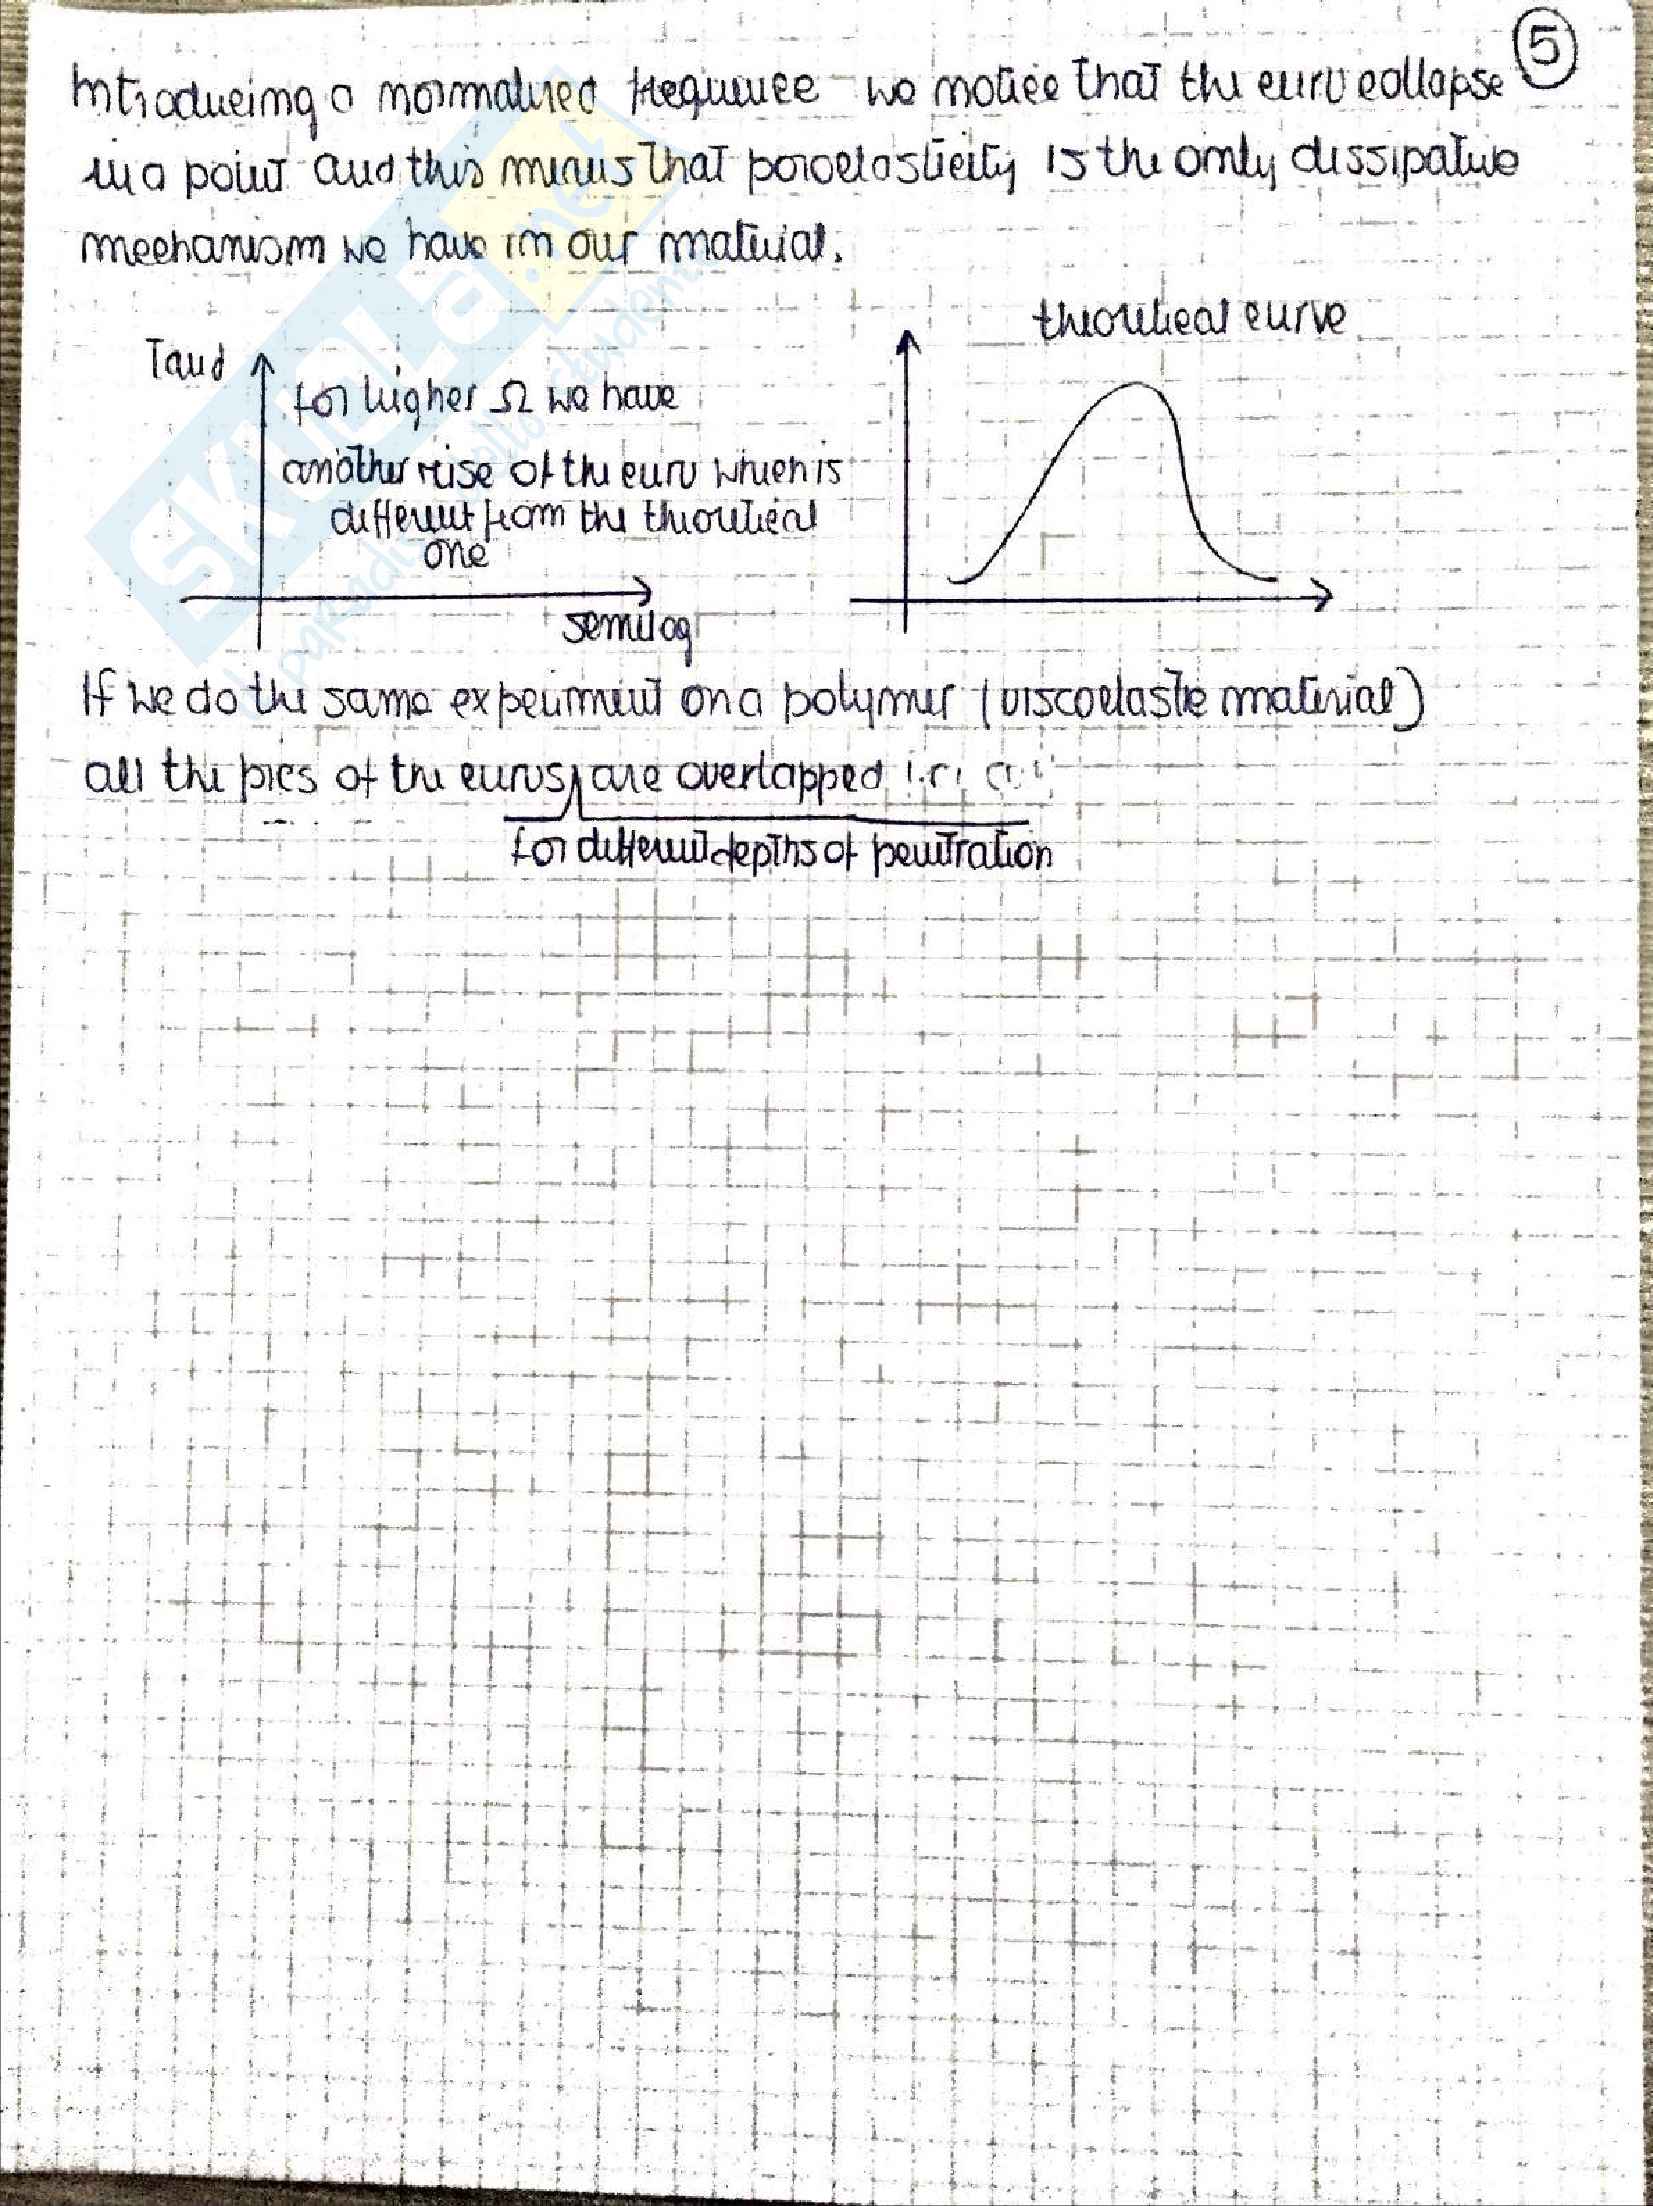 5
Introducing a normalized frequence we notice that the curv collapse
in a point and this means that poroelasticity is the only dissipative
mechanism we have in our material.
theoretical curve
Tand
for higher Ω we have
another rise of the curv which is
different from the theoretical
one
semilog
If we do the same experiment on a polymer (viscoelastic material)
all the pics of the curvs are overlapped
for different depths of penetration
SKUOLA.net